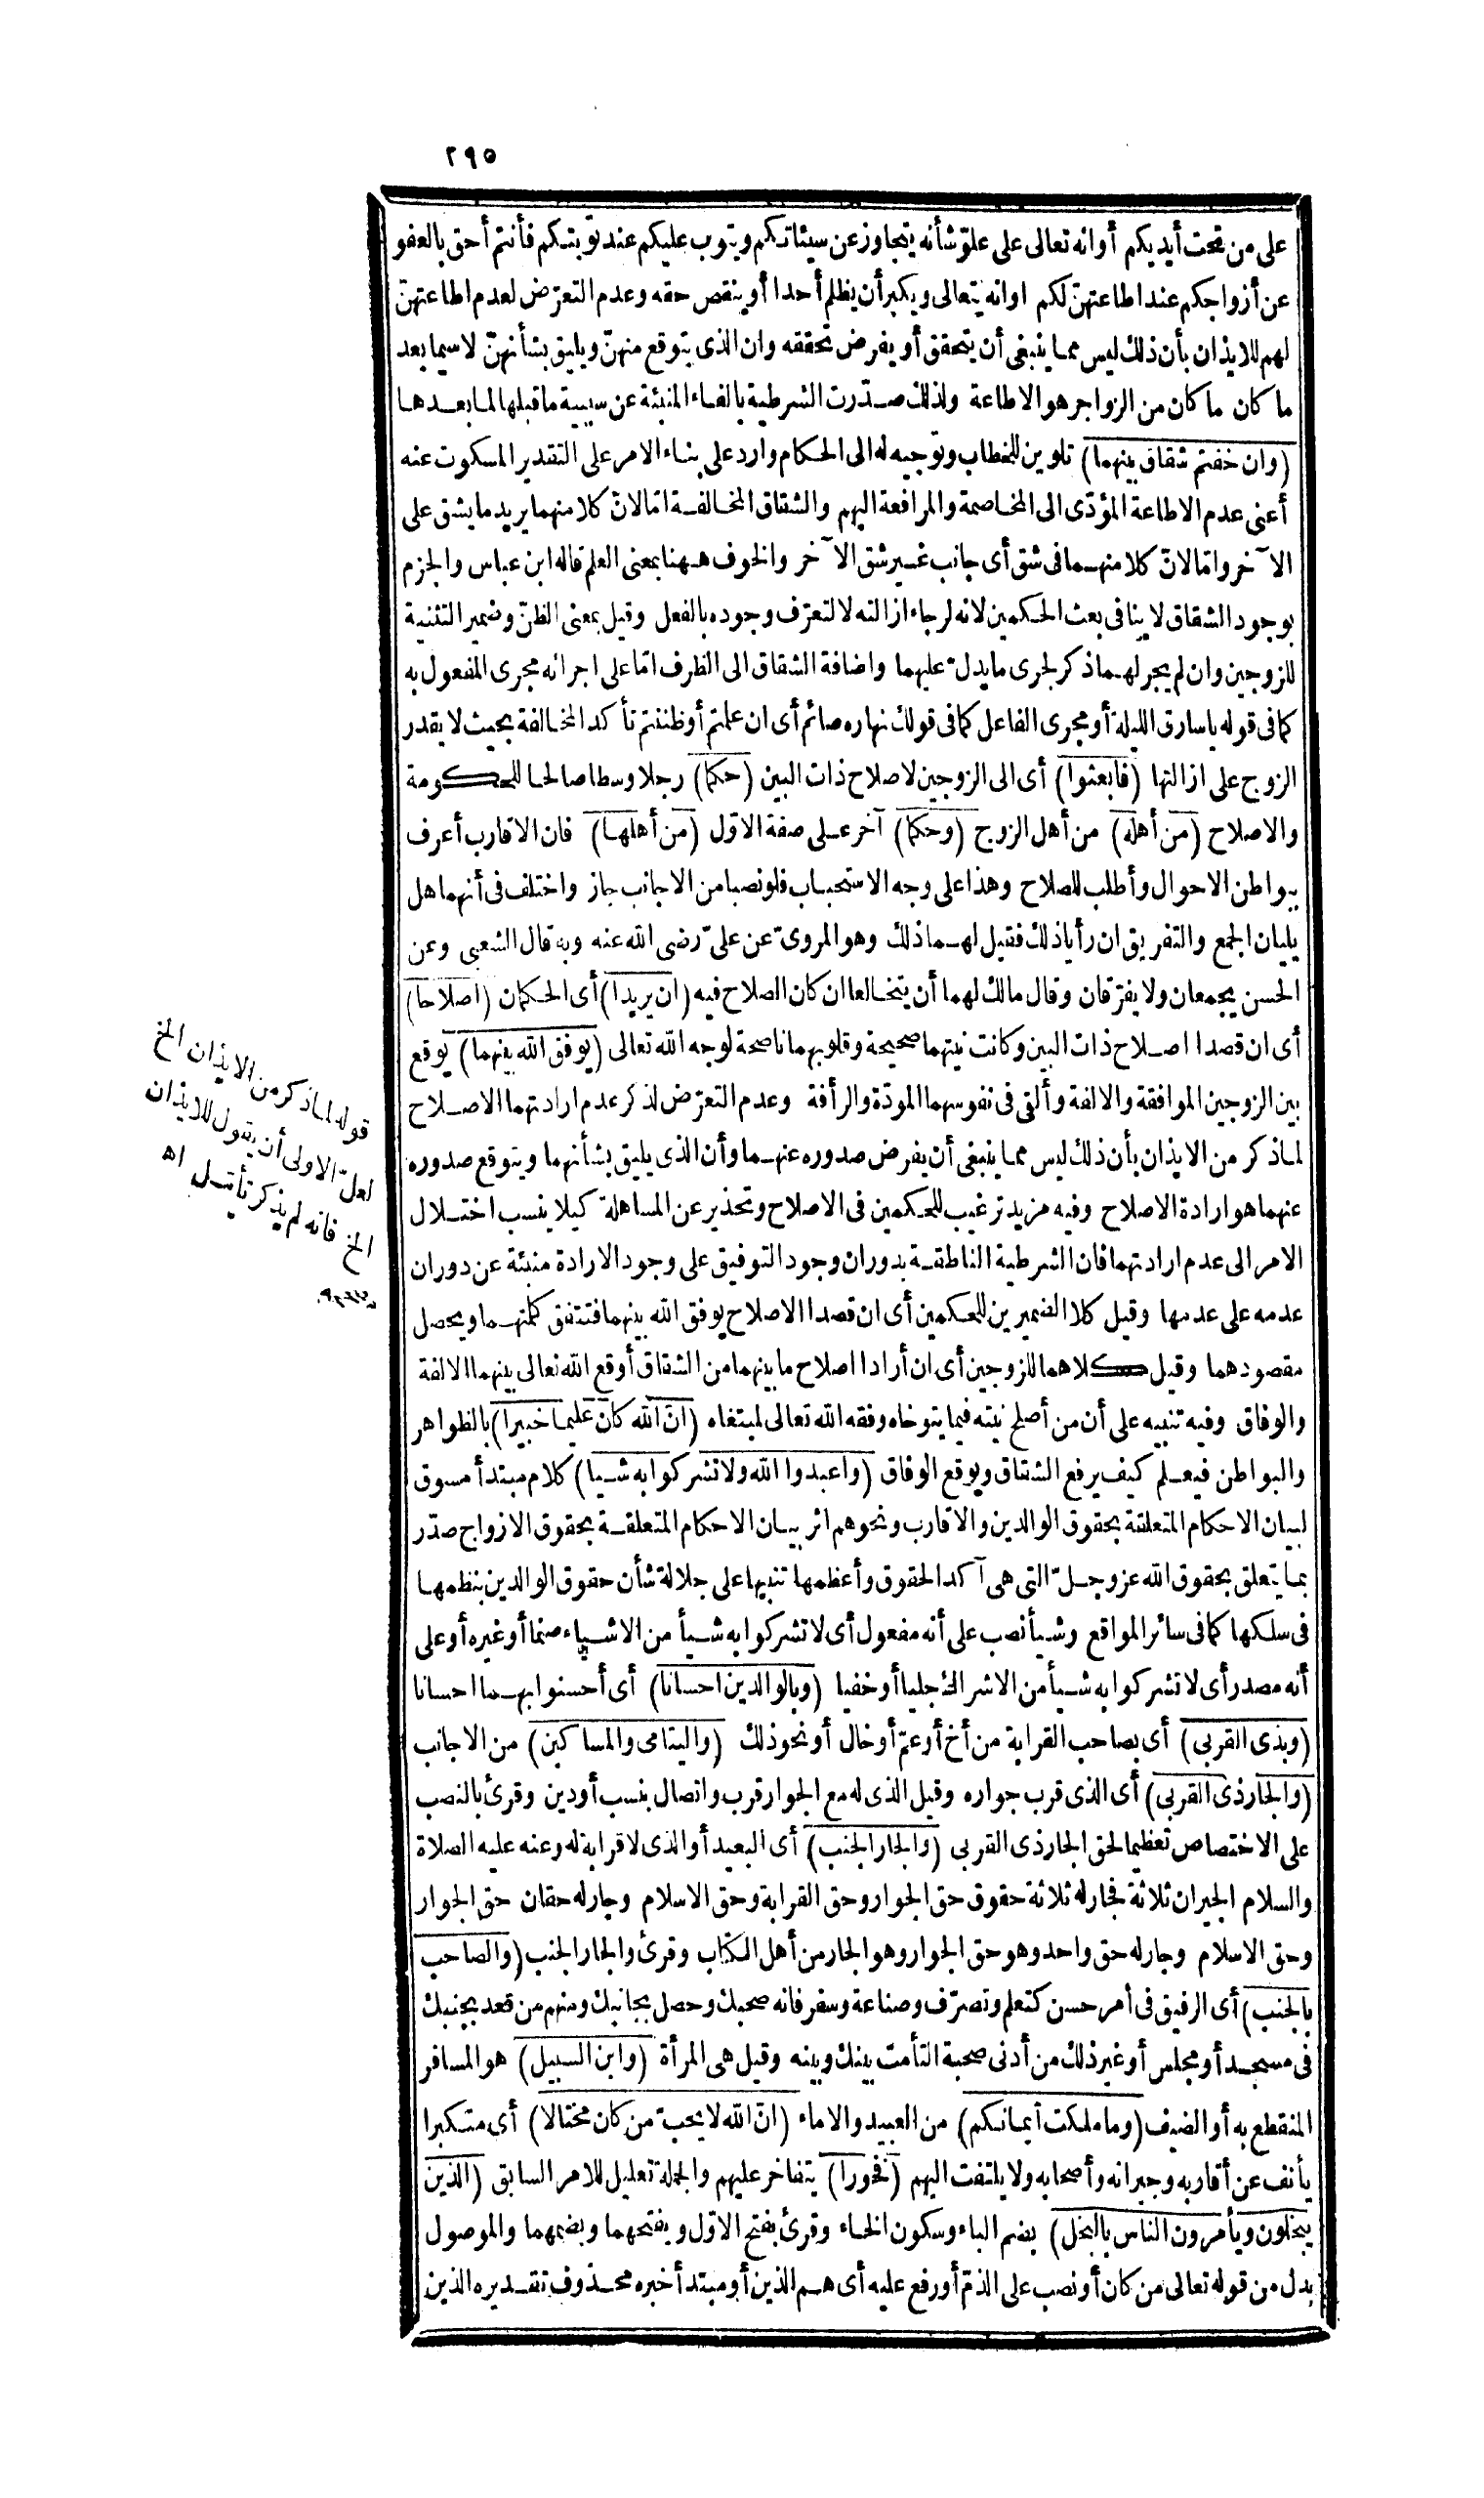 ٢٩٥
على من تحت أيديكم أوانه تعالى على علوّ شأنه يتجاوز عن سيئاتكم ويتوب عليكم عند توبتكم فأنتم أحق بالعفو
عن أزواجكم عند اطاعتهنّ لكم اوانه يتعالى ويكبر أن يظلم أحدا أو ينقص حقه وعدم التعرّض لعدم اطاعتهنّ
لهم للايذان بأن ذلك ليس مما ينبغى أن يتحقق أو يفرض تحققه وان الذى يتوقع منهنّ ويليق بشأنهنّ لاسيما بعد
ما كان ما كان من الزواجر هو الاطاعة ولذلك صدّرت الشرطية بالفاء المنبئة عن سببية ما قبلها لما بعدها
(وان خفتم شقاق بينهما) تلوين للخطاب وتوجيه له الى الحكام وارد على بناء الامر على التقدير المسكوت عنه
أعنى عدم الاطاعة المؤدّى الى المخاصمة والمرافعة اليهم والشقاق المخالفة امّا لانّ كلا منهما يريد ما يشق على
الآخر وامّا لانّ كلا منهما فى شق أى جانب غير شق الآخر والخوف ههنا بمعنى العلم قاله ابن عباس والجزم
بوجود الشقاق لا ينافى بعث الحكمين لانه لرجاء ازالته لا لتعرّف وجوده بالفعل وقيل بمعنى الظنّ وضمير التثنية
للزوجين وان لم يجر لهما ذكر لجرى ما يدلّ عليهما واضافة الشقاق الى الظرف امّا على اجرائه مجرى المفعول به
كما فى قوله ياسارق الليلة أو مجرى الفاعل كما فى قولك نهاره صائم أى ان علمتم أو ظننتم تأكد المخالفة بحيث لا يقدر
الزوج على ازالتها (فابعثوا) أى الى الزوجين لاصلاح ذات البين (حكما) رجلا وسطا صالحا للحكومة
والاصلاح (من أهله) من أهل الزوج (وحكما) آخر على صفة الاوّل (من أهلها) فان الاقارب أعرف
ببواطن الاحوال وأطلب للصلاح وهذا على وجه الاستحباب فلو نصبا من الاجانب جاز واختلف فى أنهما هل
يليان الجمع والتفريق ان رأيا ذلك فقيل لهما ذلك وهو المروىّ عن علىّ رضى الله عنه وبه قال الشعبى وعن
الحسن يجمعان ولا يفرّقان وقال مالك لهما أن يتخالعا ان كان الصلاح فيه (ان يريدا) أى الحكمان (اصلاحا)
أى ان قصدا اصلاح ذات البين وكانت نيتهما صحيحة وقلوبهما ناصحة لوجه الله تعالى (يوفق الله بينهما) يوقع
بين الزوجين الموافقة والالفة وألقى فى نفوسهما المودّة والرأفة وعدم التعرّض لذكر عدم ارادتهما الاصلاح
لما ذكر من الايذان بأن ذلك ليس مما ينبغى أن يفرض صدوره عنهما وأن الذى يليق بشأنهما ويتوقع صدوره
عنهما هو ارادة الاصلاح وفيه مزيد ترغيب للحكمين فى الاصلاح وتحذير عن المساهلة كيلا ينسب اختلال
الامر الى عدم ارادتهما فان الشرطية الناطقة بدوران وجود التوفيق على وجود الارادة منبئة عن دوران
عدمه على عدمها وقيل كلا الضميرين للحكمين أى ان قصدا الاصلاح يوفق الله بينهما فتتفق كلمتهما ويحصل
مقصودهما وقيل كلاهما للزوجين أى ان أرادا اصلاح ما بينهما من الشقاق أوقع الله تعالى بينهما الالفة
والوفاق وفيه تنبيه على أن من أصلح نيته فيما يتوخاه وفقه الله تعالى لمبتغاه (انّ الله كان عليما خبيرا) بالظواهر
والبواطن فيعلم كيف يرفع الشقاق ويوقع الوفاق (واعبدوا الله ولا تشركوا به شيأ) كلام مبتدأ مسوق
لبيان الاحكام المتعلقة بحقوق الوالدين والاقارب ونحوهم اثر بيان الاحكام المتعلقة بحقوق الازواج صدّر
بما يتعلق بحقوق الله عز وجلّ التى هى آكد الحقوق وأعظمها تنبيها على جلالة شأن حقوق الوالدين بنظمها
فى سلكها كما فى سائر المواقع وشيأ نصب على أنه مفعول أى لا تشركوا به شيأ من الاشياء صنما أو غيره أو على
أنه مصدر أى لا تشركوا به شيأ من الاشراك جليا أو خفيا (وبالوالدين احسانا) أى أحسنوا بهما احسانا
(وبذى القربى) أى بصاحب القرابة من أخ أو عمّ أو خال أو نحو ذلك (واليتامى والمساكين) من الاجانب
(والجار ذى القربى) أى الذى قرب جواره وقيل الذى له مع الجوار قرب واتصال بنسب أو دين وقرئ بالنصب
على الاختصاص تعظيما لحق الجار ذى القربى (والجار الجنب) أى البعيد أو الذى لا قرابة له وعنه عليه الصلاة
والسلام الجيران ثلاثة فجار له ثلاثة حقوق حق الجوار وحق القرابة وحق الاسلام وجار له حقان حق الجوار
وحق الاسلام وجار له حق واحد وهو حق الجوار وهو الجار من أهل الكتاب وقرئ والجار الجنب (والصاحب
بالجنب) أى الرفيق فى أمر حسن كتعلم وتصرّف وصناعة وسفر فانه صحبك وحصل بجانبك ومنهم من قعد بجنبك
فى مسجد أو مجلس أو غير ذلك من أدنى صحبة التأمت بينك وبينه وقيل هى المرأة (وابن السبيل) هو المسافر
المنقطع به أو الضيف (وما ملكت أيمانكم) من العبيد والاماء (انّ الله لا يحبّ من كان مختالا) أى متكبرا
يأنف عن أقاربه وجيرانه وأصحابه ولا يلتفت اليهم (فخورا) يتفاخر عليهم والجملة تعليل للامر السابق (الذين
يبخلون ويأمرون الناس بالبخل) بضم الباء وسكون الخاء وقرئ بفتح الاوّل وبفتحهما وبضمهما والموصول
بدل من قوله تعالى من كان أو نصب على الذمّ أو رفع عليه أى هم الذين أو مبتدأ خبره محذوف تقديره الذين
قوله لما ذكر من الايذان الخ
لعلّ الاولى أن يقول للايذان
الخ فانه لم يذكر تأمّل اه